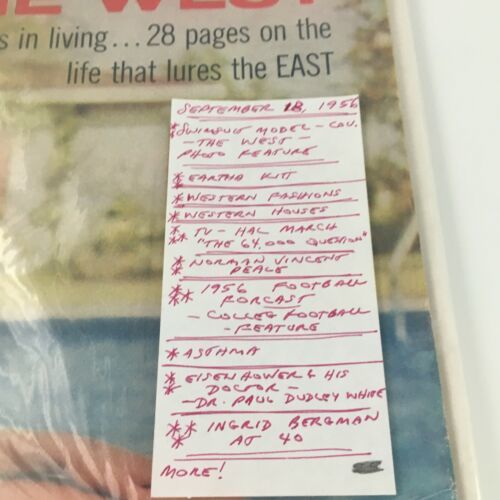 THE WEST
s in living...28 pages on the
life that lures the EAST
SEPTEMBER 18, 1956
*SWIMSUIT MODEL - COV.
- THE WEST -
PHOTO FEATURE
*EARTHA KITT
*WESTERN FASHIONS
*WESTERN HOUSES
* TV - HAL MARCH
** "THE 64,000 QUESTION"
* NORMAN VINCENT
* PEALE
* 1956 FOOTBALL
** FORCAST
- COLLEG FOOTBALL
- FEATURE
*ASTHMA
* EISENHOWER & HIS
* DOCTOR -
- DR. PAUL DUDLEY WHITE
** INGRID BERGMAN
* AT 40
MORE!